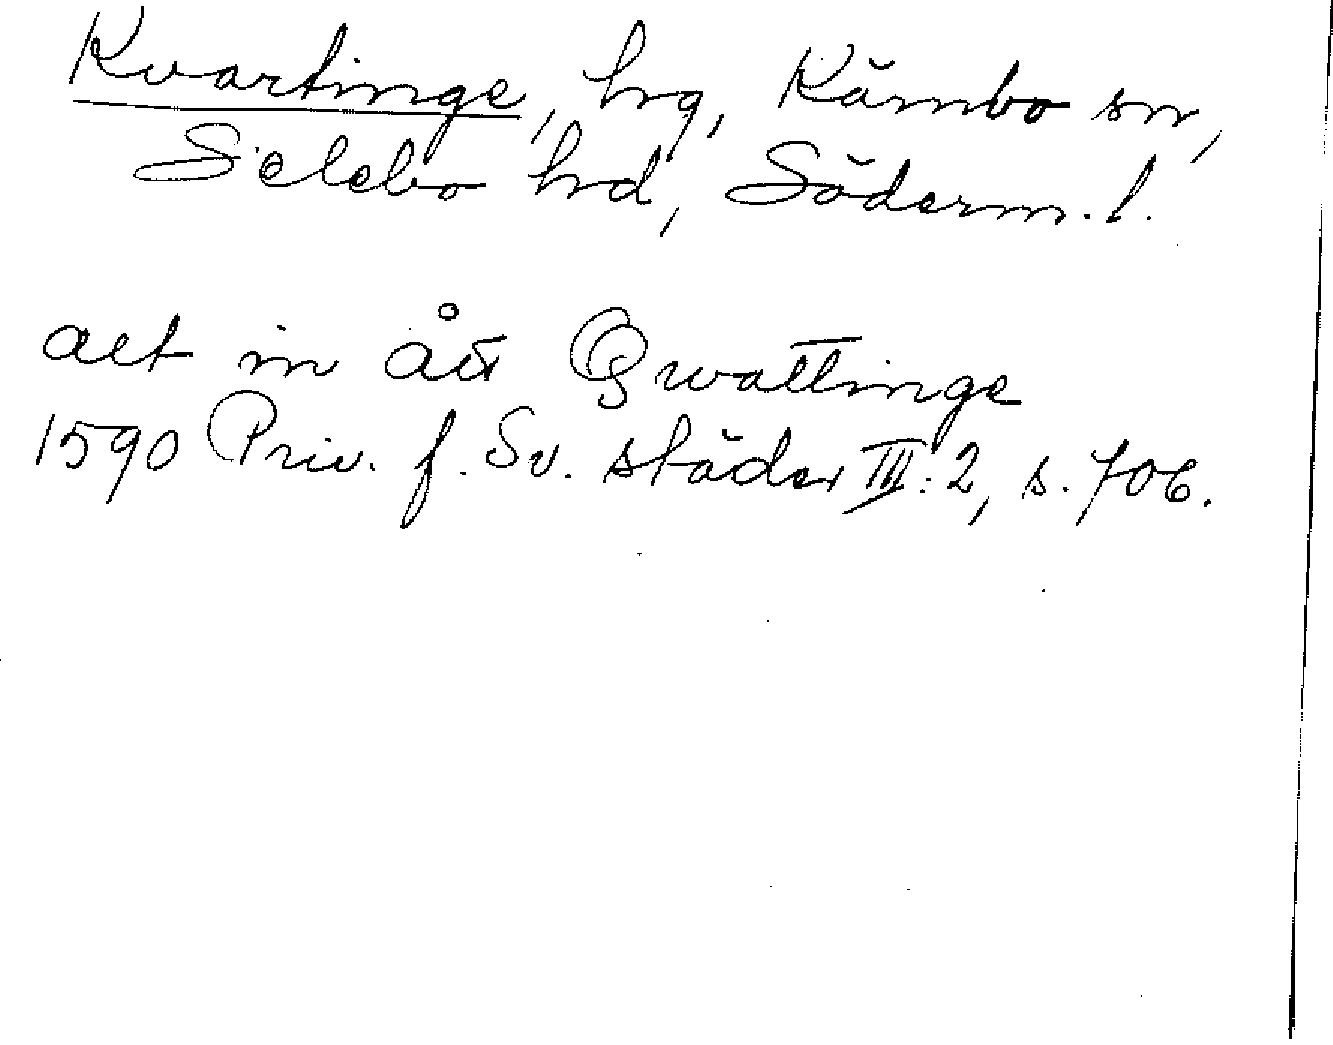 Kvartinge, hg, Kärnbo sn,
Selebo hd, Söderm. l.
alt in ått Qwattinge
1590 Priv. f. Sv. städer III:2, s. 706.